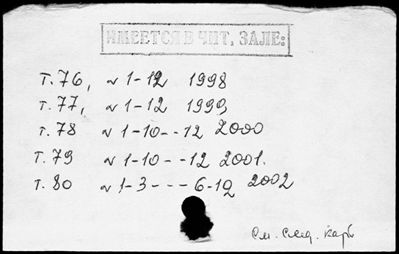 ИМЕЕТСЯ В ЧИТ. ЗАЛЕ:
т. 76, № 1-12 1998
т. 77, № 1-12 1999
т. 78 № 1-10--12 2000
т. 79 № 1-10--12 2001.
т. 80 № 1-3---6-12 2002
См. след. карт